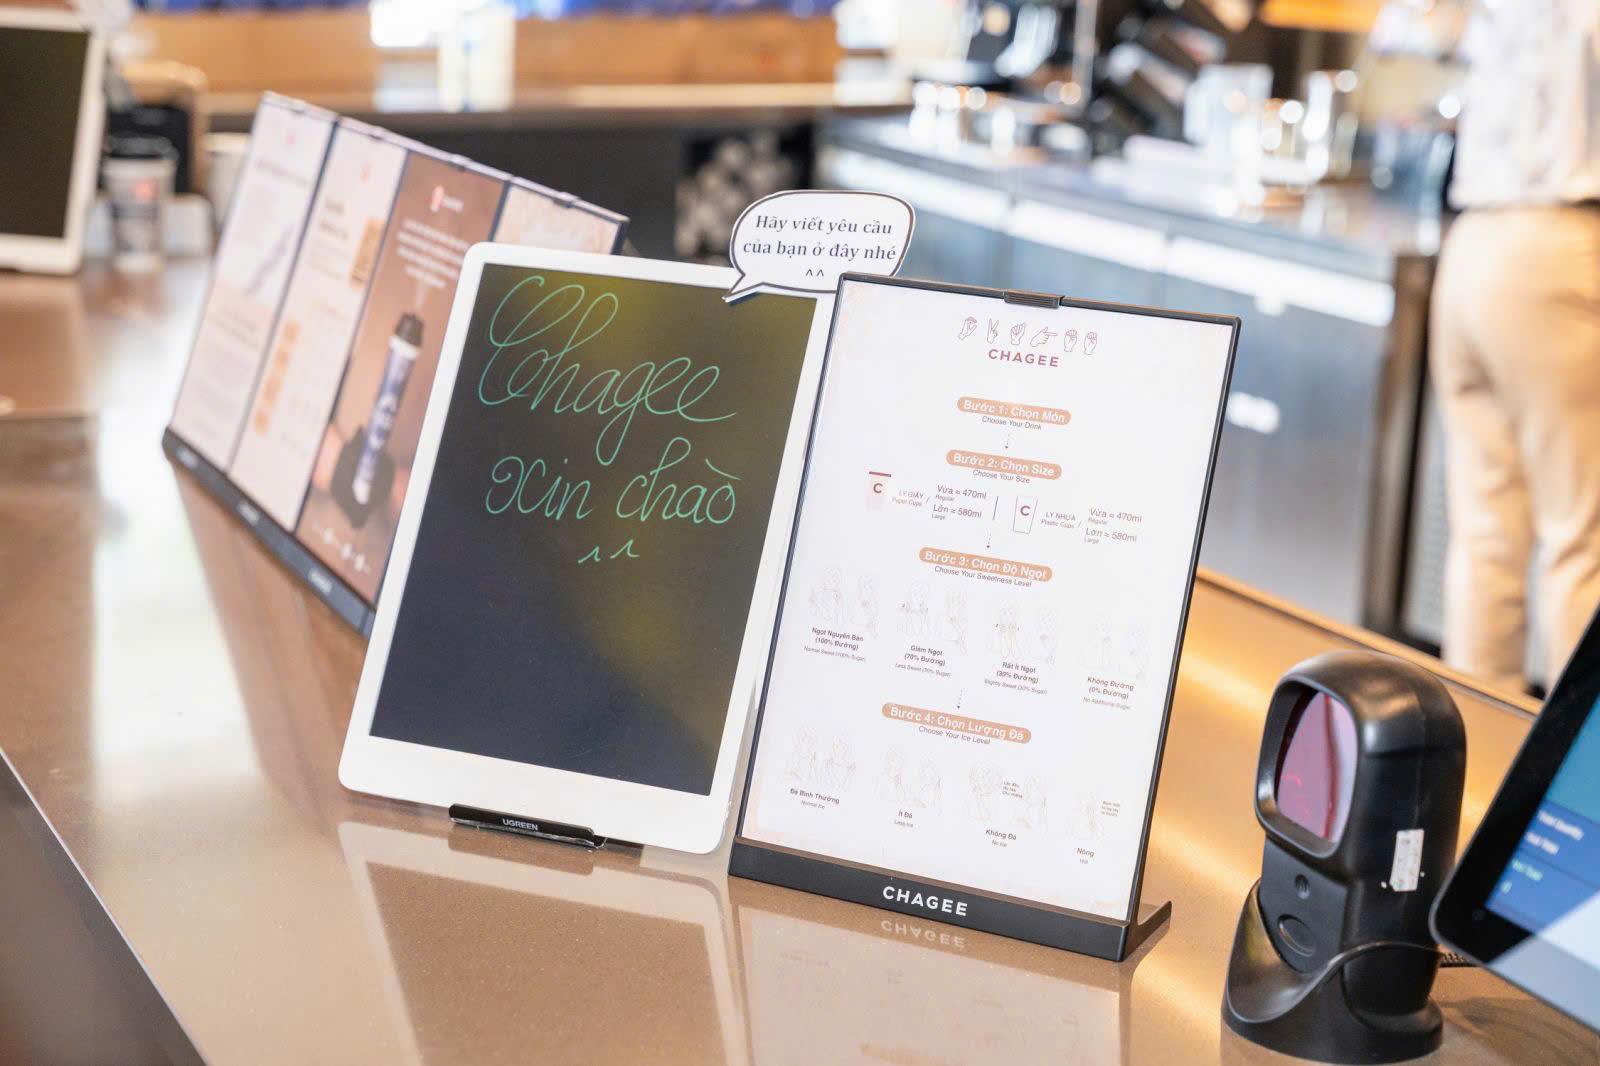 Hãy viết yêu cầu
của bạn ở đây nhé
^^
Chagee
xin chào
^^
UGREEN
CHAGEE
Bước 1: Chọn Món
Choose Your Drink
Bước 2: Chọn Size
Choose Your Size
C
LY GIẤY
Paper Cups
/
Vừa ≈ 470ml
Regular
Lớn ≈ 580ml
Large
C
LY NHỰA
Plastic Cups
/
Vừa ≈ 470ml
Regular
Lớn ≈ 580ml
Large
Bước 3: Chọn Độ Ngọt
Choose Your Sweetness Level
Ngọt Nguyên Bản
(100% Đường)
Normal Sweet (100% Sugar)
Giảm Ngọt
(70% Đường)
Less Sweet (70% Sugar)
Rất Ít Ngọt
(30% Đường)
Slightly Sweet (30% Sugar)
Không Đường
(0% Đường)
No Additional Sugar
Bước 4: Chọn Lượng Đá
Choose Your Ice Level
Đá Bình Thường
Normal Ice
Ít Đá
Less Ice
Không Đá
No Ice
Nóng
Hot
CHAGEE